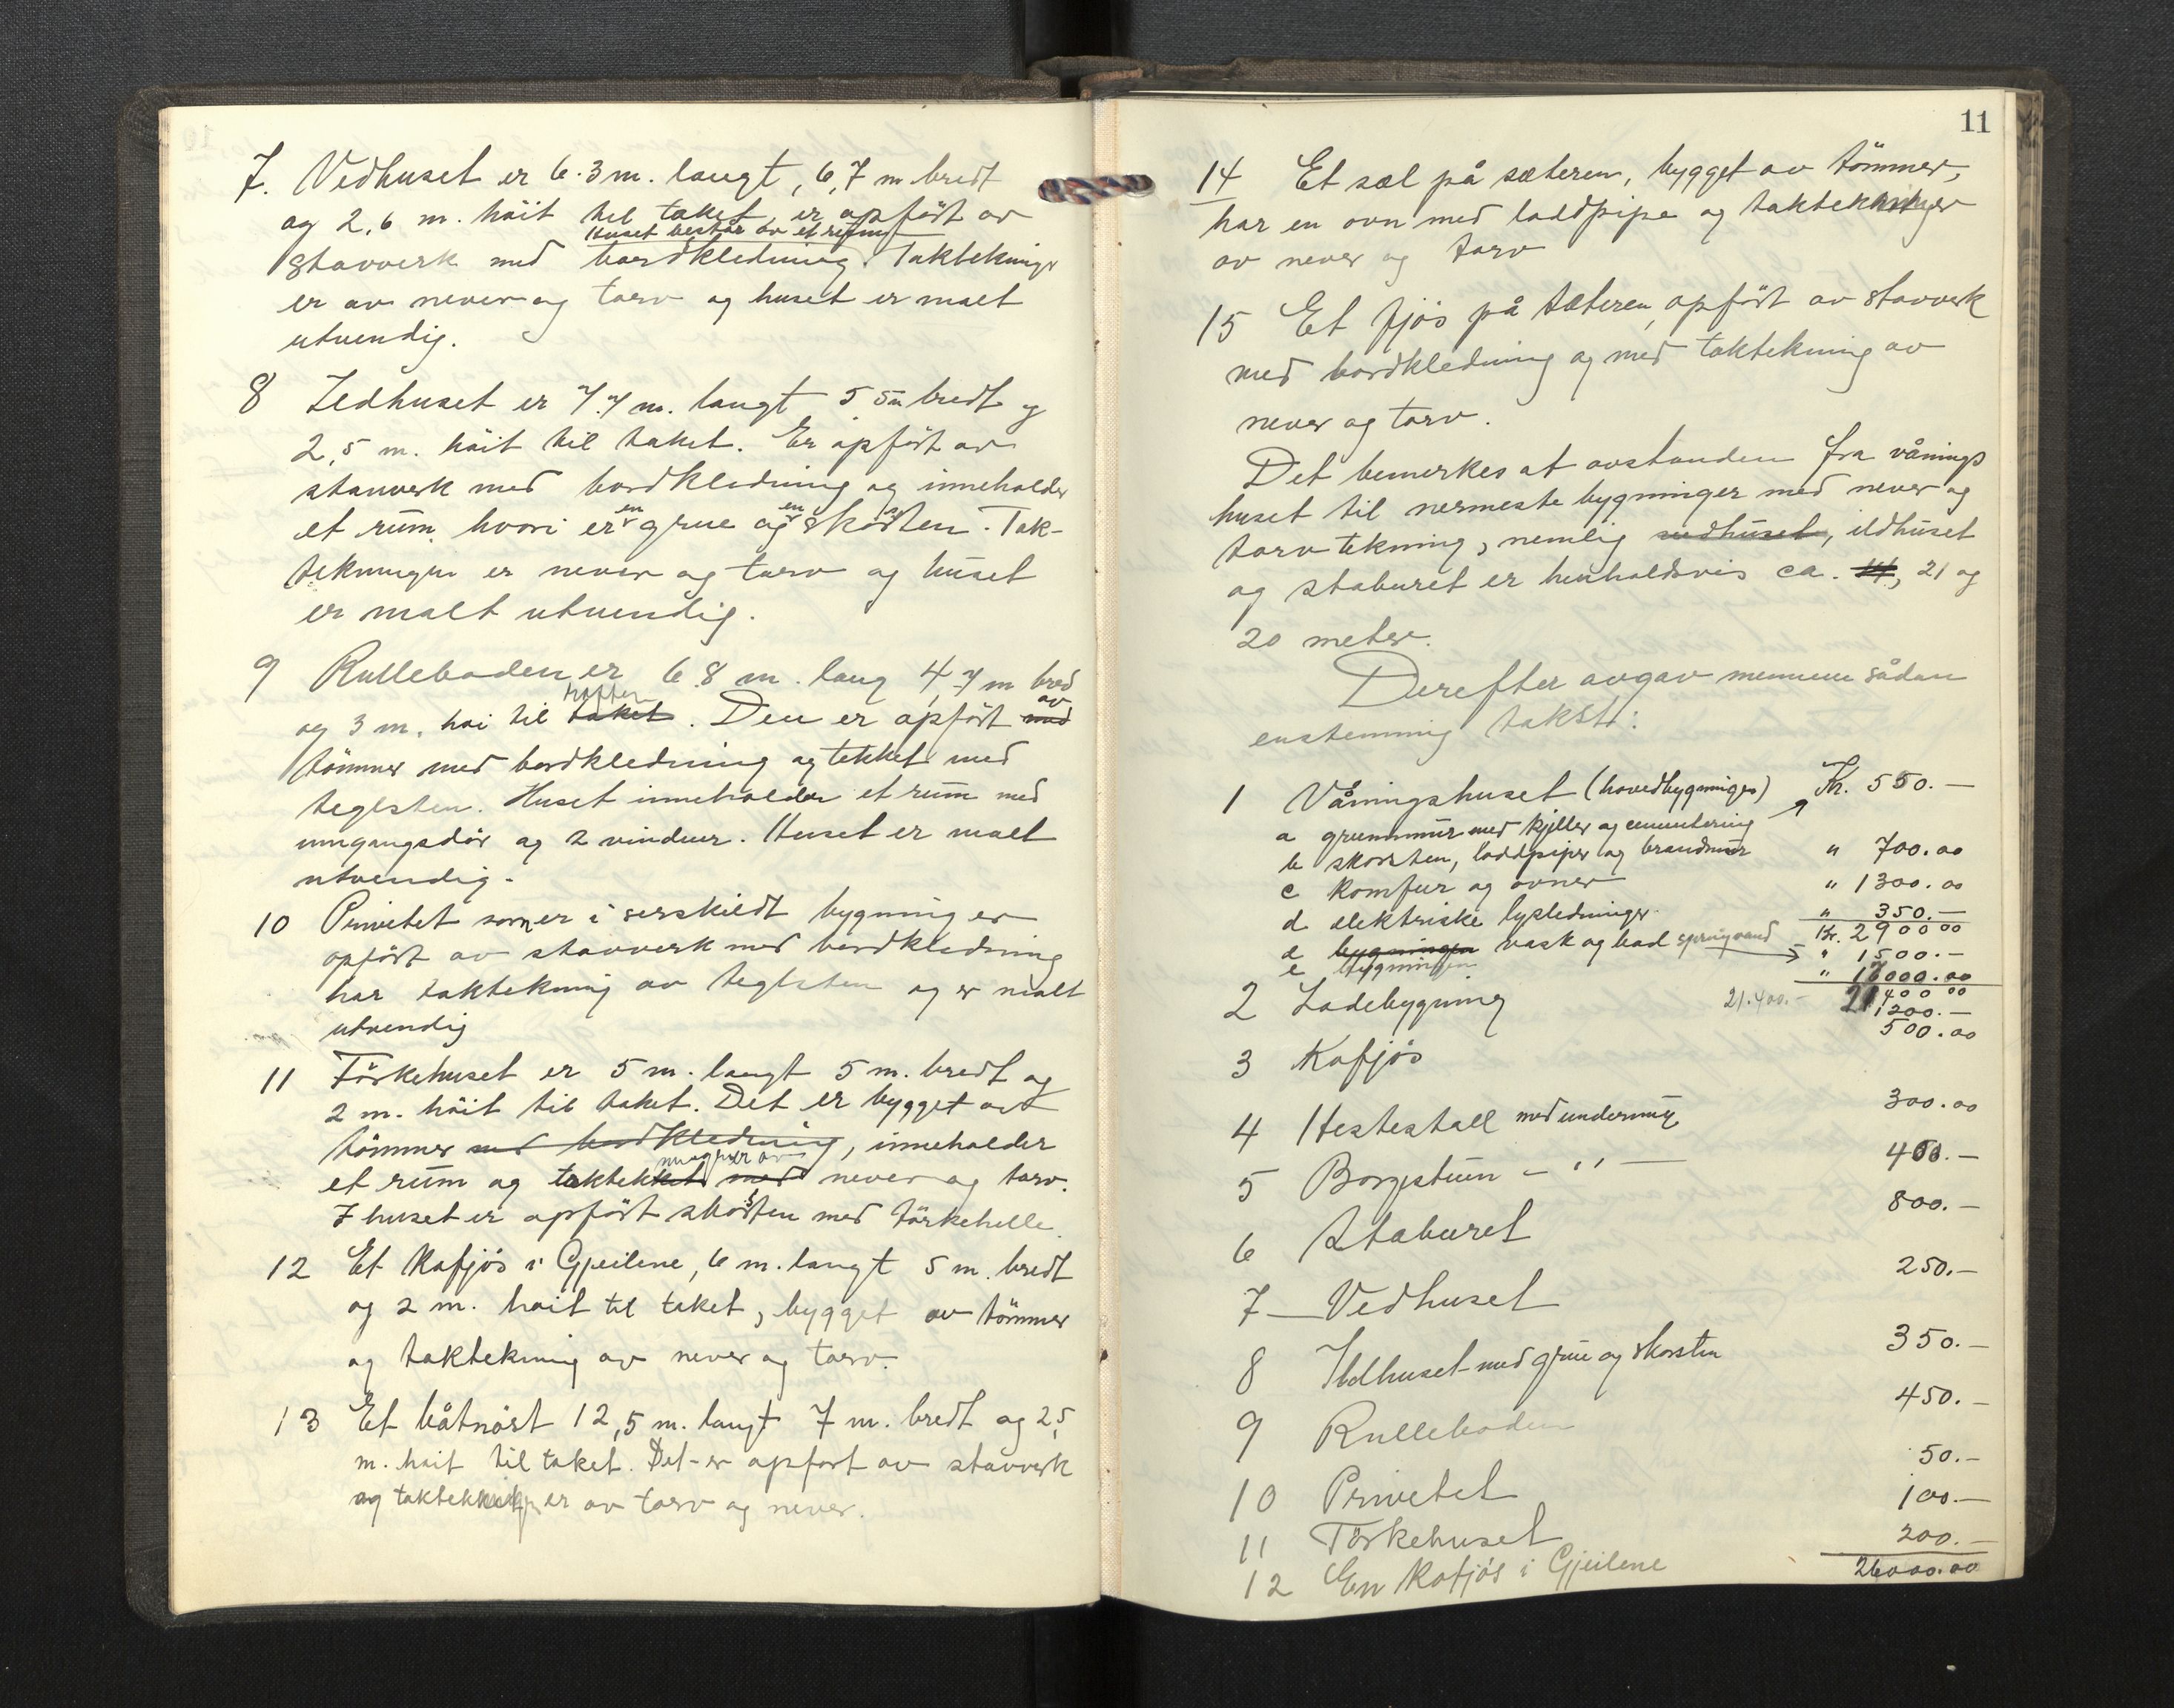 7. Vedhuset er 6.3 m. langt, 6,7 m bredt
og 2,6 m. höit til taket, er opfört av
Huset består av et rum
stavverk med bordkledning. Taktekningen
er av never og torv og huset er malt
utvendig.
8 Ildhuset er 7.7 m. langt 5 5 m bredt og
2,5 m. höit til taket. Er opfört av
stavverk med bordkledning og inneholder
et rum hvori er en grue og en skorsten. Tak-
tekningen er never og torv og huset
er malt utvendig.
9 Rulleboden er 6.8 m. lang 4,7 m bred
og 3 m. höi til taket röften. Den er opfört med av
tömmer med bordkledning og tekket med
teglsten. Huset inneholder et rum med
inngangsdör og 2 vinduer. Huset er malt
utvendig.
10 Privetet som er i serskildt bygning er
opfört av stavverk med bordkledning
har taktekning av teglsten og er malt
utvendig
11 Törkehuset er 5 m. langt 5 m. bredt og
2 m. höit til taket. Det er bygget av
tömmer med bordkledning, inneholder
et rum og taktekket med ningen er av never og torv.
I huset er opfört skorsten med törkehelle.
12 Et Kafjös i Gjeilene, 6 m. langt 5 m. bredt
og 2 m. höit til taket, bygget av tömmer
og taktekning av never og torv.
13 Et båtnöst 12,5 m. langt 7 m. bredt og 2,5
m. höit til taket. Det er opfört av stavverk
og taktekningen er av torv og never.
11
14 Et sæl på sæteren, bygget av tömmer,
har en ovn med loddpipe og taktekninger
av never og torv
15 Et fjös på sæteren, opfört av stavverk
med bordkledning og med taktekning av
never og torv.
Det bemerkes at avstanden fra vånings
huset til nermeste bygninger med never og
torvtekning, nemlig vedhuset, ildhuset
og staburet er henholdsvis ca. 14, 21 og
20 meter.
Derefter avgav mennene sådan
enstemmig takst:
1 Våningshuset (hovedbygningen) Kr. 550.—
a grunnmur med kjeller og cementering
b skorsten, loddpiper og brandmur " 700.00
c Komfur og ovner " 1300.00
d elektriske lysledninger " 350.—
Kr. 2900 00
d bygningen vask og bad springvand " 1500.—
e Bygningen " 17000.00
2 Ladebygning 21.400.— 21400 00
1200.—
500.00
3 Kafjös
4 Hestestall med undermur 300.00
5 Borgstuen – " — 400.—
6 Staburet 800.—
7 — Vedhuset 250.—
8 Ildhuset med grue og skorsten 350.—
9 Rulleboden 450.—
10 Privetet 50.—
11 Törkehuset 100.—
12 En Kafjös i Gjeilene 200.—
26000.00